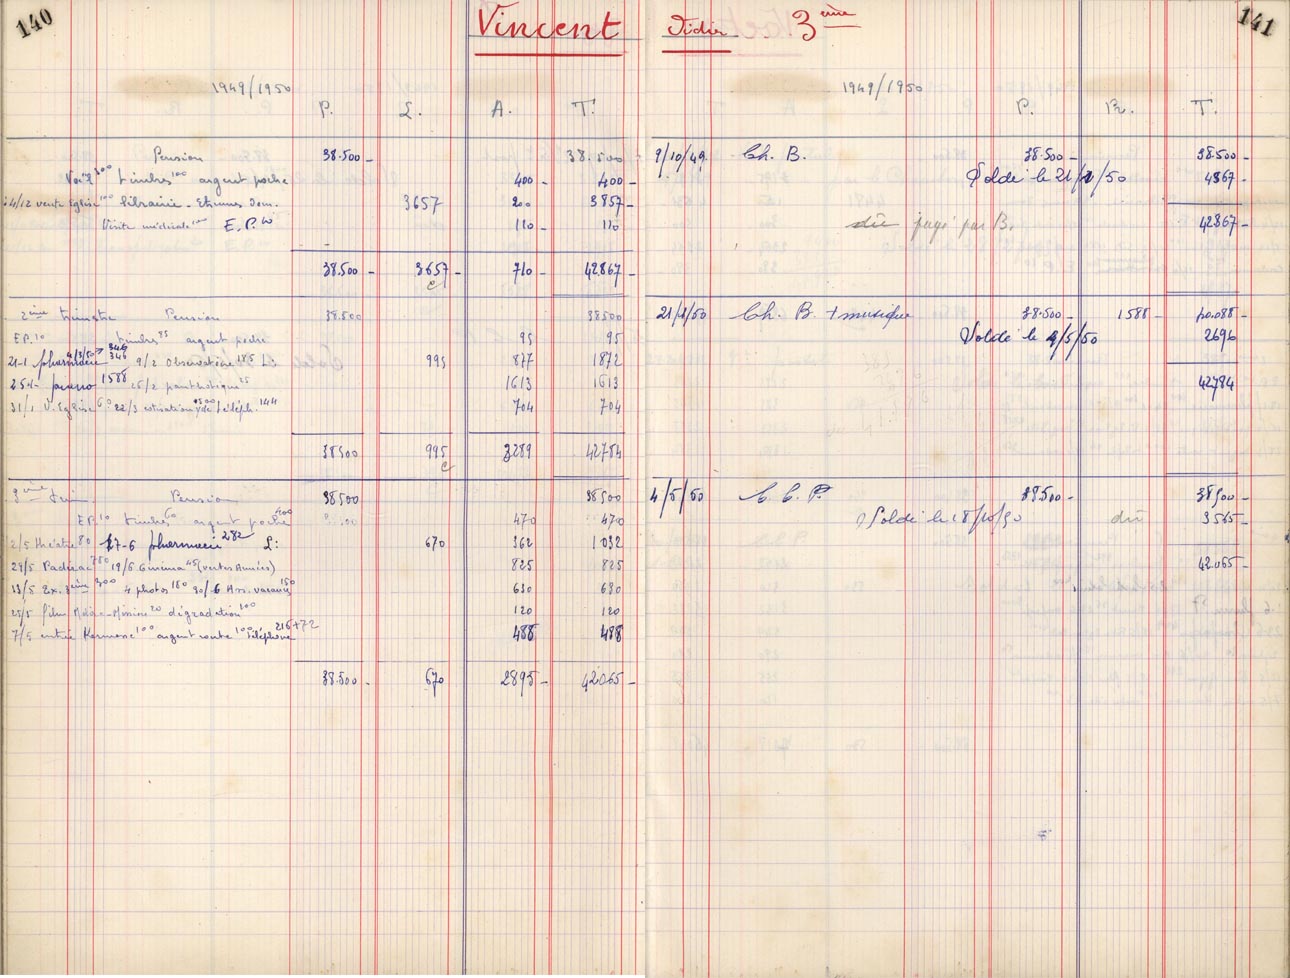 140
Vincent Didier 3ème
141
1949/1950
P. L. A. T.
Pension 38.500 - 38.500
300 timbres 100 argent poche 400 - 400 -
14/12 vente Eglise 100 librairie - Etrennes Dom. 3657 200 3857 -
Visite médicale 100 E.P. 10 110 - 110 -
38.500 - 3657 - 710 - 42.867 -
c
2ème trimestre Pension 38.500 38500
E.P. 10 timbres 85 argent poche 95 95
21-1 pharmacie 346 9/2 Observatoire 185 L: 995 877 1872
1588 25/2 panthotique 25 1613 1613
31/1 V. Eglise 60 22/3 cotisation 500 téléph. 144 704 704
38500 995 3289 42784
c
3ème trim. Pension 38500 38500
E.P. 10 timbres 60 argent poche 400 470 470
2/5 théâtre 80 17-6 pharmacie 282 L: 670 362 1032
780 19/6 Cinéma 45 (vertes Années) 825 825
300 4 photos 180 30/6 Ass. vacances 150 630 630
25/5 film 20 dégradation 100 120 120
7/5 entrée Kermesse 100 argent route 100 Téléphone 216+72 488 488
38.500 - 670 2895 - 42.065 -
1949/1950
P. R. T.
9/10/49 Ch. B. 38.500 - 38.500 -
Soldé le 21/1/50 4367 -
dû payé par B. 42867 -
21/1/50 Ch. B. + musique 38.500 - 1588 - 40.088 -
Soldé le 4/5/50 2696
42784
4/5/50 C. C. P. 38.500 - 38500 -
Soldé le 18/10/50 dû 3565 -
42.065 -